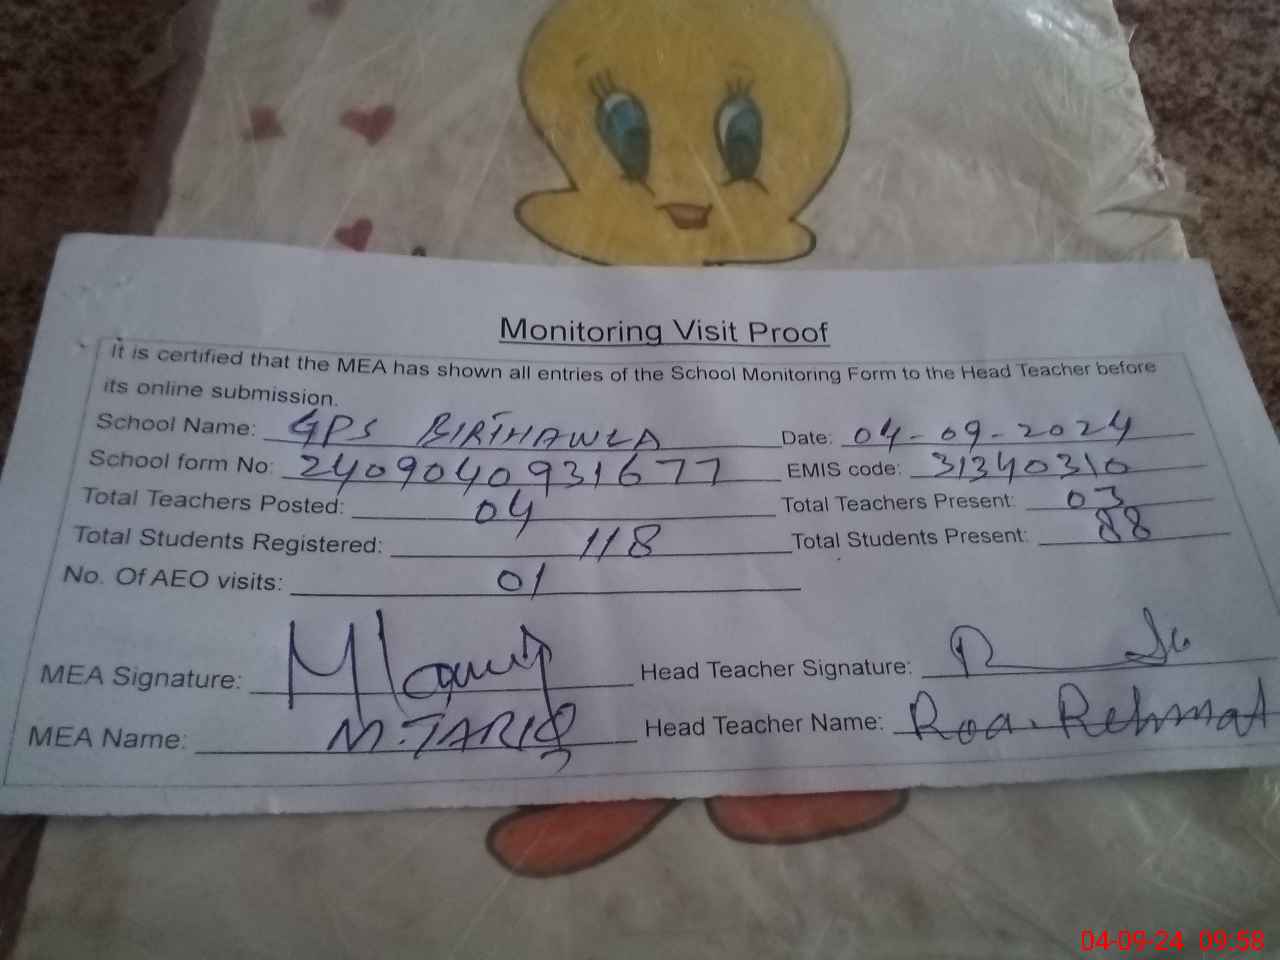 Monitoring Visit Proof
It is certified that the MEA has shown all entries of the School Monitoring Form to the Head Teacher before
its online submission.
School Name: GPS BIRTHAWLA Date: 04-09-2024
School form No: 2409040931677 EMIS code: 31340310
Total Teachers Posted: 04 Total Teachers Present: 03
Total Students Registered: 118 Total Students Present: 88
No. Of AEO visits: 01
MEA Signature: Head Teacher Signature:
MEA Name: M.TARIQ Head Teacher Name: Roa. Rehmat
04-09-24 09:58